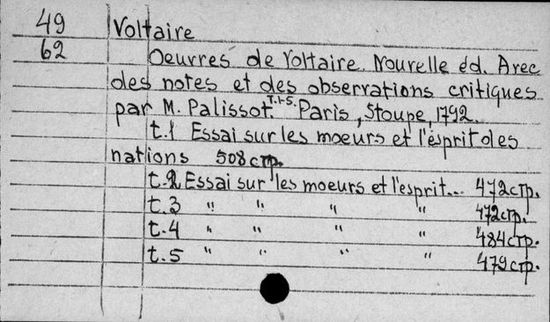 49 Voltaire
62 Oeuvres de Voltaire Nouvelle éd. Avec
des notes et des observations critiques
par M. Palissot. T.1-5. Paris, Stoupe, 1792.
t.1 Essai sur les moeurs et l'ésprit des
nations 508 стр.
t.2 Essai sur les moeurs et l'esprit... 472 стр.
t.3 " " " " 472 стр.
t.4 " " " " 484 стр.
t.5 " " " " 479 стр.